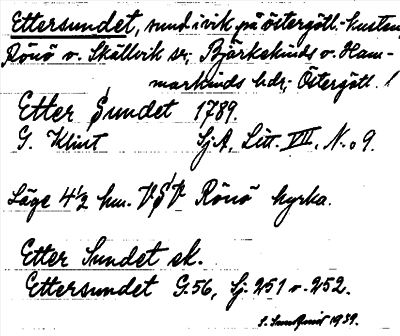 Ettersundet, sund i vik på östergötl. kusten,
Rönö o. Skällvik sr, Björkekinds o. Ham-
markinds hdr, Östergötl. l
Etter Sundet 1789.
G. Klint Sj A, Litt. VIII, N:o 9.
Läge 4 1/2 km. VSV Rönö kyrka.
Etter Sundet sk.
Ettersundet G.56, Sj. 251 o. 252.
1939.